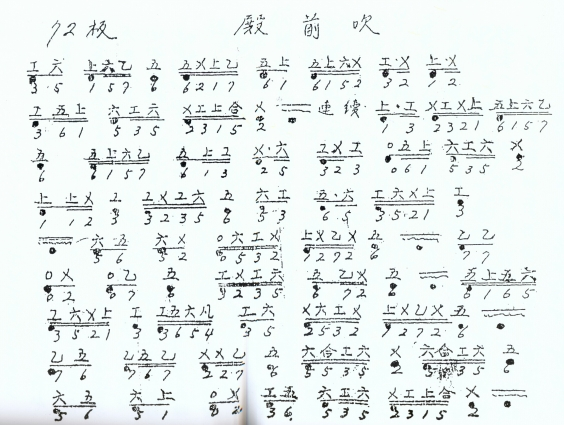 72板 殿前吹
工六 上六乙 五 五乂上乙 五上 五上六乂 工·乂 上·乂
3 5 1 5 7 6 6 2 1 7 6 1 6 1 5 2 3 2 1 2
工五上 六工六 乂工上合 乂 连续 上·工 乂工乂上 五上六乙
3 6 1 5 3 5 2 3 1 5 2 1 3 2 3 2 1 6 1 5 7
五 五上六乙 五上工 乂·六 工乂工 0五上 六工六 乂
6 6 1 5 7 6 1 3 2 5 3 2 3 0 6 1 5 3 5 2
上上乂 工 工乂工六 五 六工 五·六 工六乂上 工
1 1 2 3 3 2 3 5 6 5 3 6 5 3 5 2 1 3
六五 六乂 0六工乂 上乂乙乂 五 乙乙
5 6 5 2 0 5 3 2 1 2 7 2 6 7 7
0乂 0乙 五 工乂工六 五乙乂 五 五上五六
0 2 0 7 6 3 2 3 5 6 7 2 6 6 1 6 5
工六乂上 工 工五六凡 工六 乂六工乂 上乂乙乂 五
3 5 2 1 3 3 6 5 4 3 5 2 5 3 2 1 2 7 2 6
乙五 乙五乙 乂乂乙 五 六合工六 乂 六合工六 五
7 6 7 6 7 2 2 7 6 5 5 3 5 2 5 5 3 5 6
六五 六上 0乂 工五 六工六 乂工上合 乂
5 6 5 1 0 2 3 6 5 3 5 2 3 1 5 2